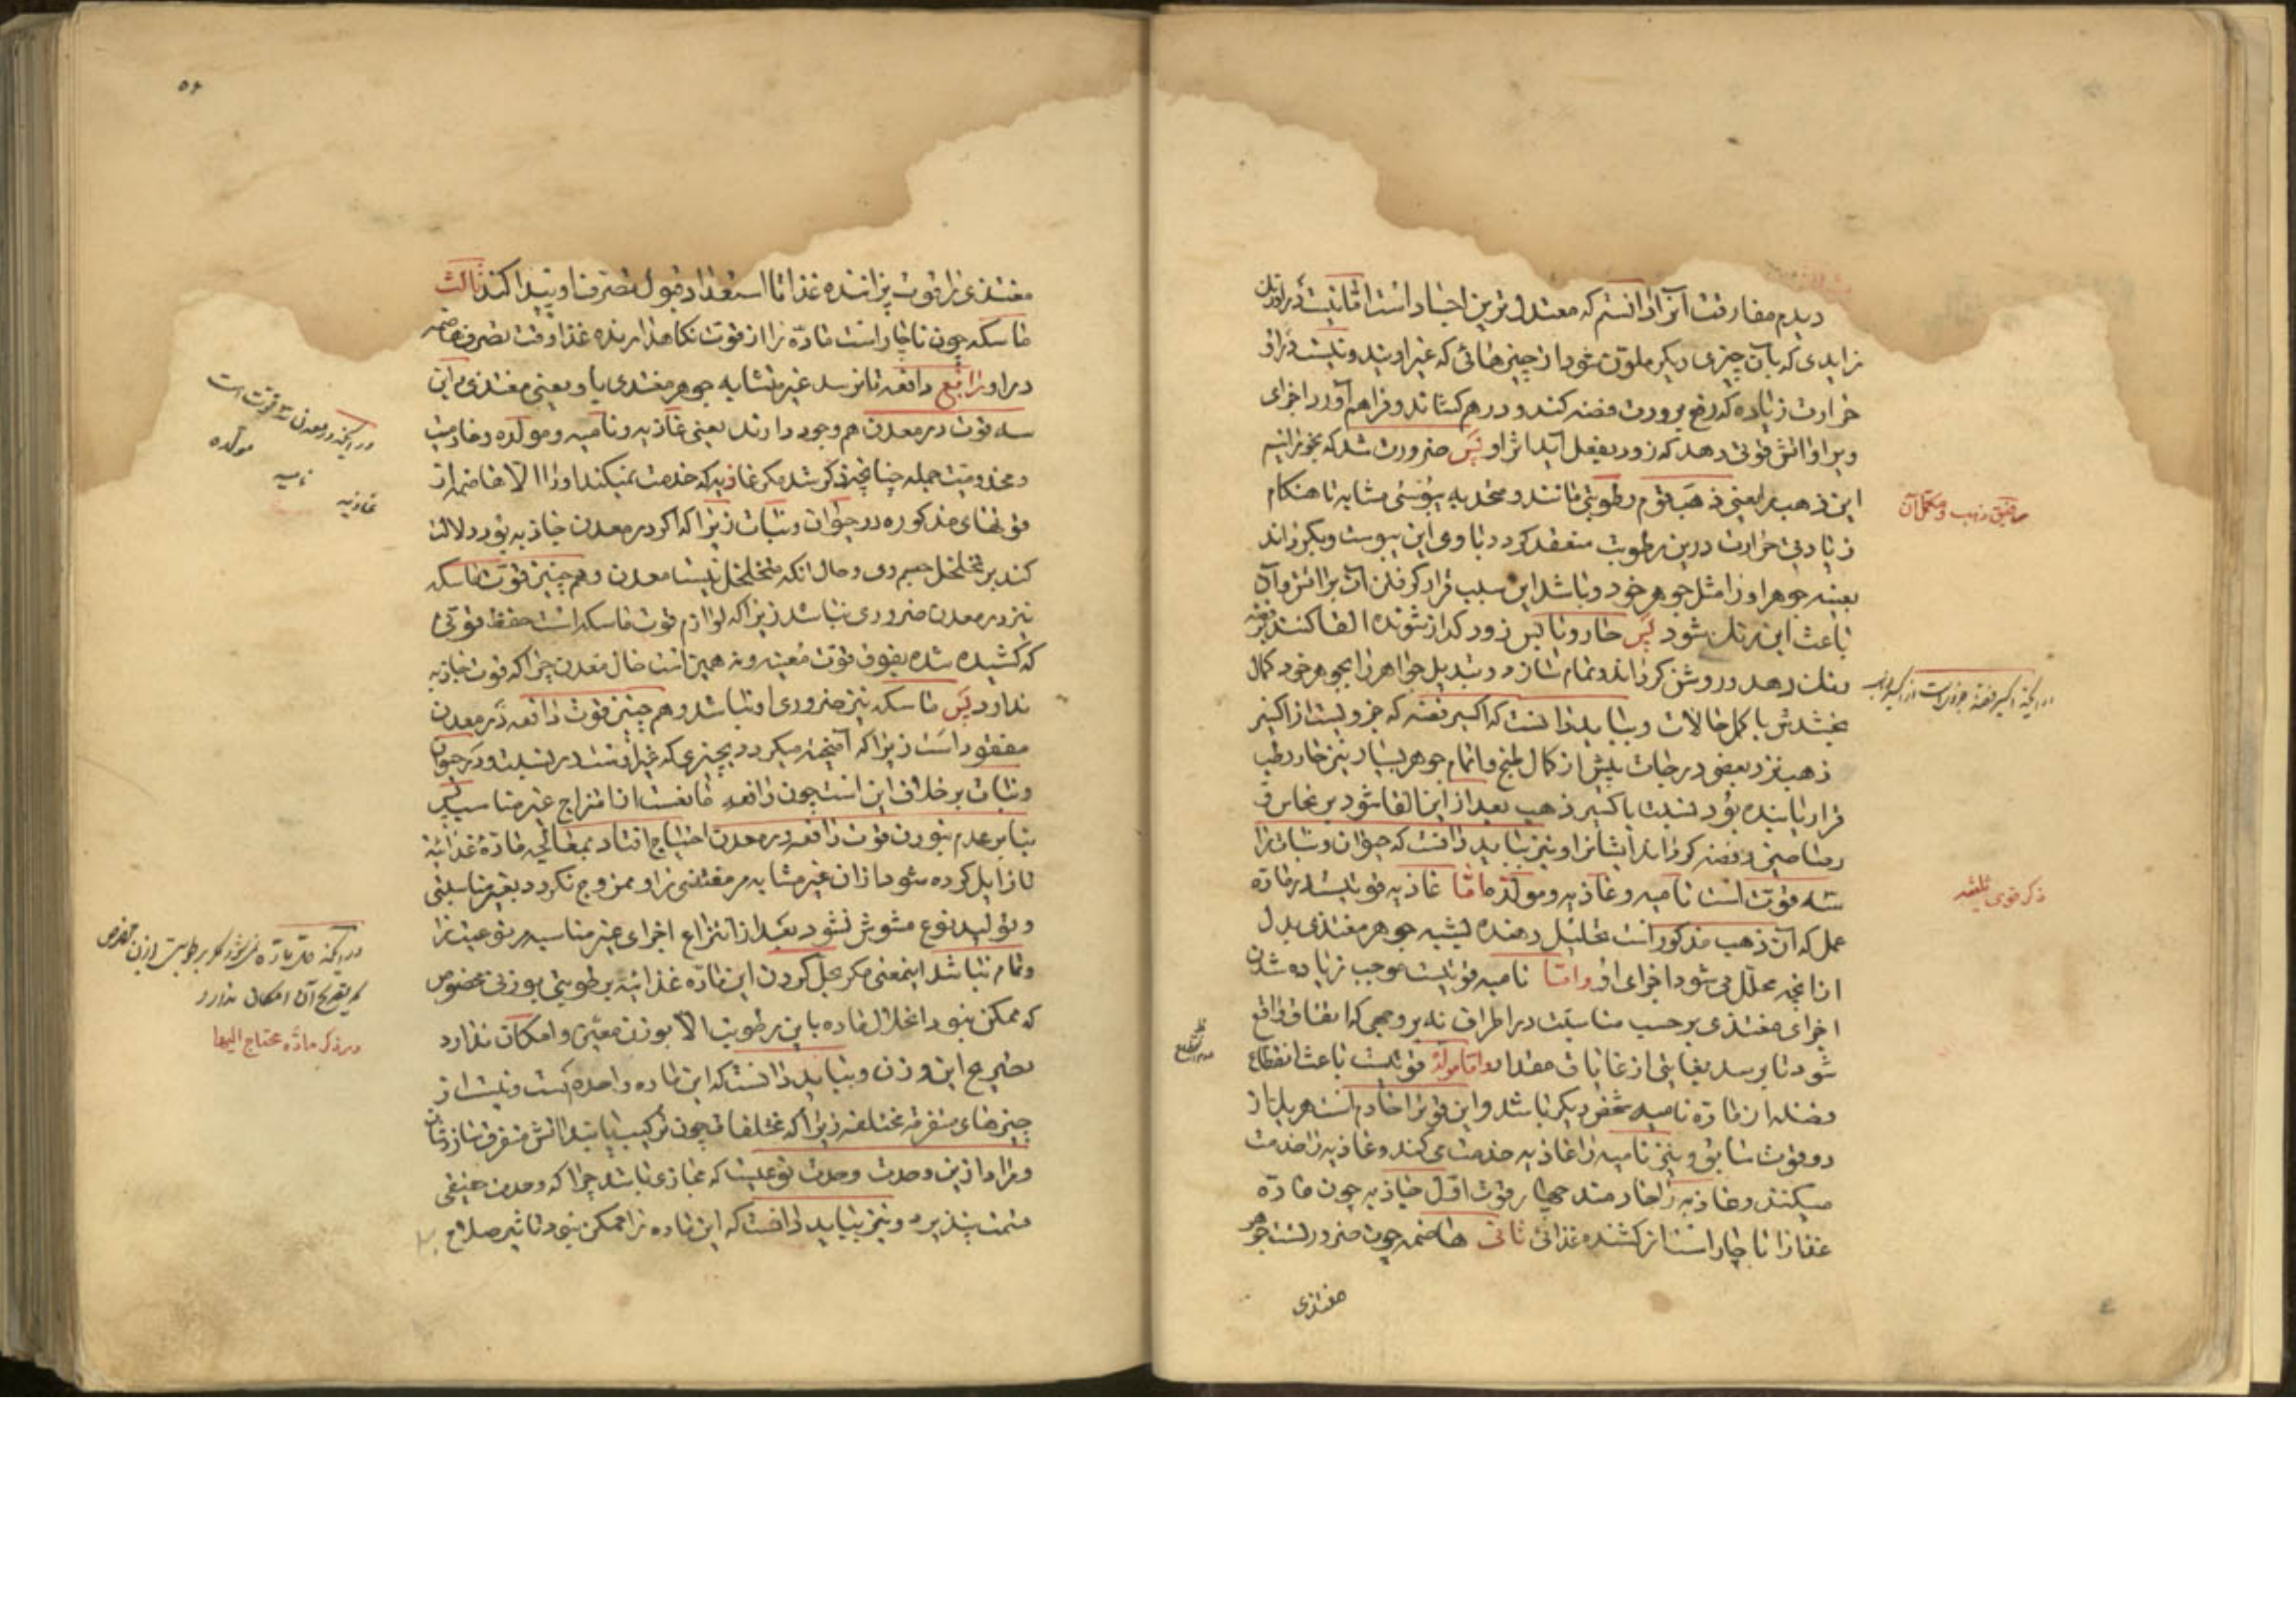 دیدم مفارقت آنرا دانستم که معتدل ترین اجساد است اما نیست در او رنگ
زایدی که بآن چیزی دیکر ملون شود از چیزهائی که غیر اویند و نیست در او
حرارت زیاده که رفع برودت فضه کند و در هم کشاند و فراهم آورد اجزای
ویرا و آتش قوتی دهد که زود بفعل آید اثر او پس ضرورت شد که
این ذهب را یعنی ذهب قوم رطوبتی مانند و متحد به یبوستی مشابه تا هنکام
زیادتی حرارت درین رطوبت منعقد کردد با وی این یبوست و بکرداند
بعینه جوهر او را مثل جوهر خود و باشد این سبب قرار کرفتن آن بر آتش و آن
باعث این رنک شود پس حار و یابس زود کداز شونده القا کنند بر فضه
رنک دهد و روشن کرداند و تمام سازد و تبدیل جواهر را بجوهر خود کمال
بخشدش باکمل حالات و بباید دانست که اکسیر فضه که جزویست از اکسیر
ذهب نزد بعضی درجات پیش از کمال طبخ و اتمام جوهر بسیار نیز حار رطب
قرار یابنده بود نسبت باکسیر ذهب بعد از این القا شود بر نحاس و
رصاصین و فضه کرداند ایشانرا و نیز بباید دانست که حیوان و نبات را
سه قوت است نامیه و غاذیه و مولده اما غاذیه قوتیست در ماده
عمل که آن ذهب مذکور است تحلیل دهنده لیشبه جوهر مغتذی بدل
از آنچه محلل می شود اجزای او و اما نامیه قوتیست موجب زیاده شدن
اجزای مغتذی بر حسب مناسبت در اطراف نه بر وجهی که اتفاق واقع
شود تا برسد بغایتی از غایات مقدار و اما مولده قوتیست باعث انقطاع
فضله از ماده نامیه شخص دیکر باشد و این قوتها خادم است هر یک از
دو قوت سابق و نیز نامیه را غاذیه خدمت می کند و غاذیه را خدمت
میکنند و غاذیه را خادمند چهار قوت اول جاذبه چون ماده
غذا را ناچار است از کشنده غذائی ثانی هاضمه چون ضرور است جوهر
مغتذی
تحقیق ذهب و مکمل آن
در آنکه اکسیر فضه جزویست از اکسیر ذهب
ذکر قوی ثلثه
۵۶
مغتذی را قوت پزاننده غذا تا استعداد قبول تصرف او پیدا کند ثالث
ماسکه چون ناچار است ماده را از قوت نکاهدارنده غذا وقت تصرف هاضمه
در او رابع دافعه تا نرسد غیر متشابه جوهر مغتدی باو یعنی مغتذی و این
سه قوت در معدن هم وجود دارند یعنی غاذیه و نامیه و مولده و خادمیت
و مخدومیت جمله چنانچه ذکر شد مکر غاذیه که خدمت نمیکند او را الا هاضمه از
قوتهای مذکوره در حیوان و نبات زیرا که اکر در معدن جاذبه بود دلالت
کند بر تخلخل جسم وی و حال آنکه متخلخل نیست معدن و هم چنین قوت ماسکه
نیز در معدن ضروری نباشد زیرا که لوازم قوت ماسکه است حفظ قوتی
که کشیده شده بقوت قوت معینه و نه همین است حال معدن چرا که قوت جاذبه
ندارد پس ماسکه نیز ضروری او نباشد و هم چنین قوت دافعه در معدن
مفقود است زیرا که آمیخته میکردد بچیزی که غیر اوست در نسبت و در حیوان
و نبات بر خلاف این است چون دافعه مانعست از امتزاج غیر مناسب پس
بنا بر عدم بودن قوت دافعه در معدن احتیاج افتاد بمعالجی ماده غذائیه
تا زایل کرده شود از آن غیر مشابه مر مغتذی را و ممزوج نکردد بغیر مناسبتی
و تولید نوع مشوش نشود بعد از انتزاع اجزای غیر مناسبه مر نوعیت را
و تمام نباشد اینمعنی مکر بحل کردن این ماده غذائیه برطوبتی بوزن مخصوص
که ممکن نبود انحلال ماده باین رطوبت الا بوزن معین و امکان ندارد
تصریح این وزن و بباید دانست که این ماده واحده است و نیست از
چیزهای متفرقه مختلفه زیرا که مختلفات چون ترکیب یابند آتش متفرق سازدشان
و مراد ازین وحدت وحدت نوعیست که مجازی باشد چرا که وحدت حقیقی
قسمت پذیر و نیز بباید دانست که این ماده را ممکن نبود تاثیر صلاح
در آنکه در معدن سه قوت است
مولده
نامیه
غاذیه
در آنکه حل ماده نمی‌شود مکر برطوبت بوزن مخصوص
که تصریح آن امکان ندارد
در ذکر ماده محتاج الیها